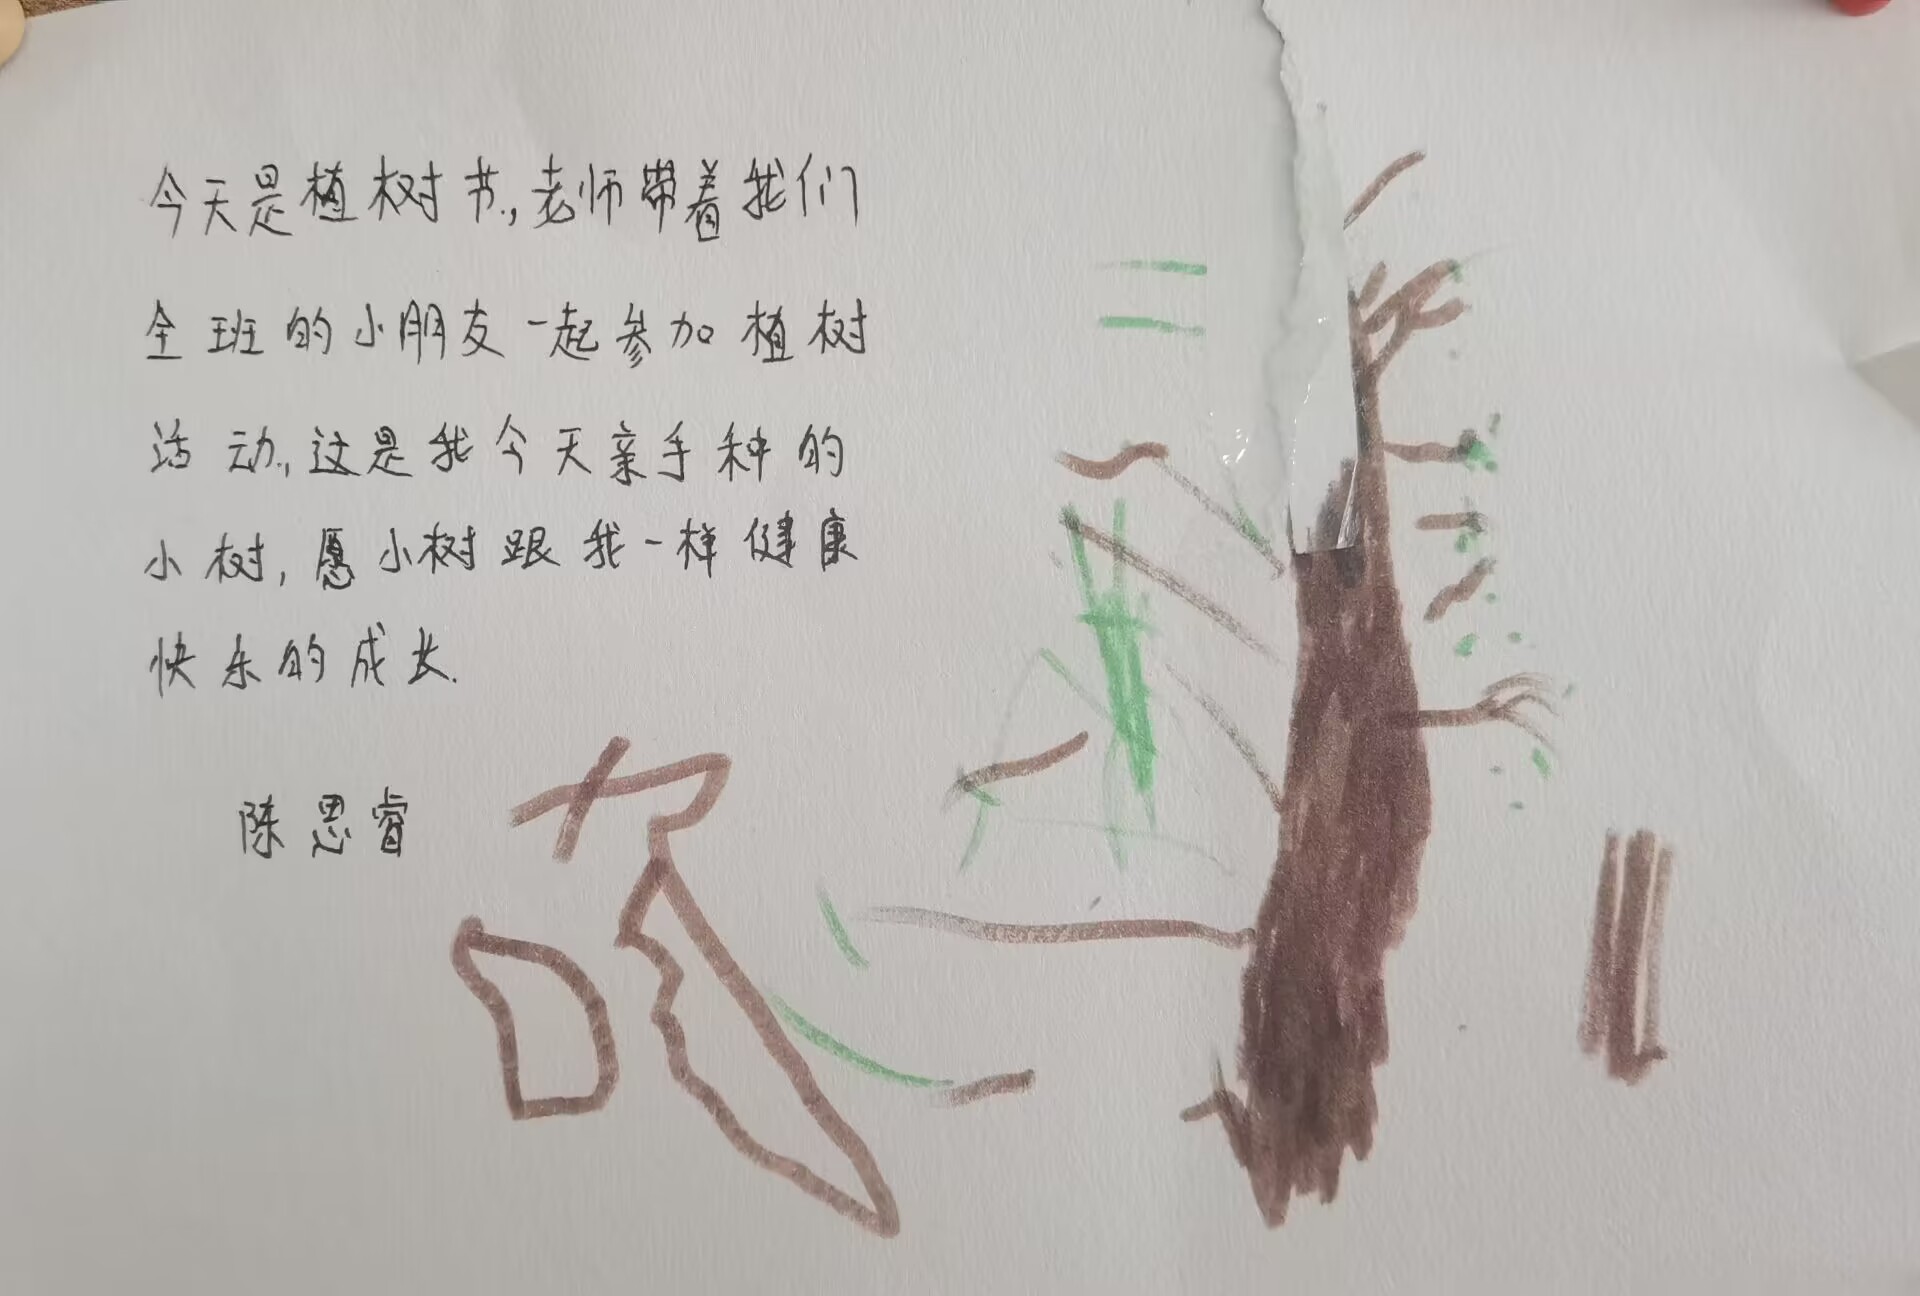 今天是植树节.,老师带着我们
全班的小朋友一起参加植树
活动.,这是我今天亲手种的
小树,愿小树跟我一样健康
快乐的成长.
陈思睿